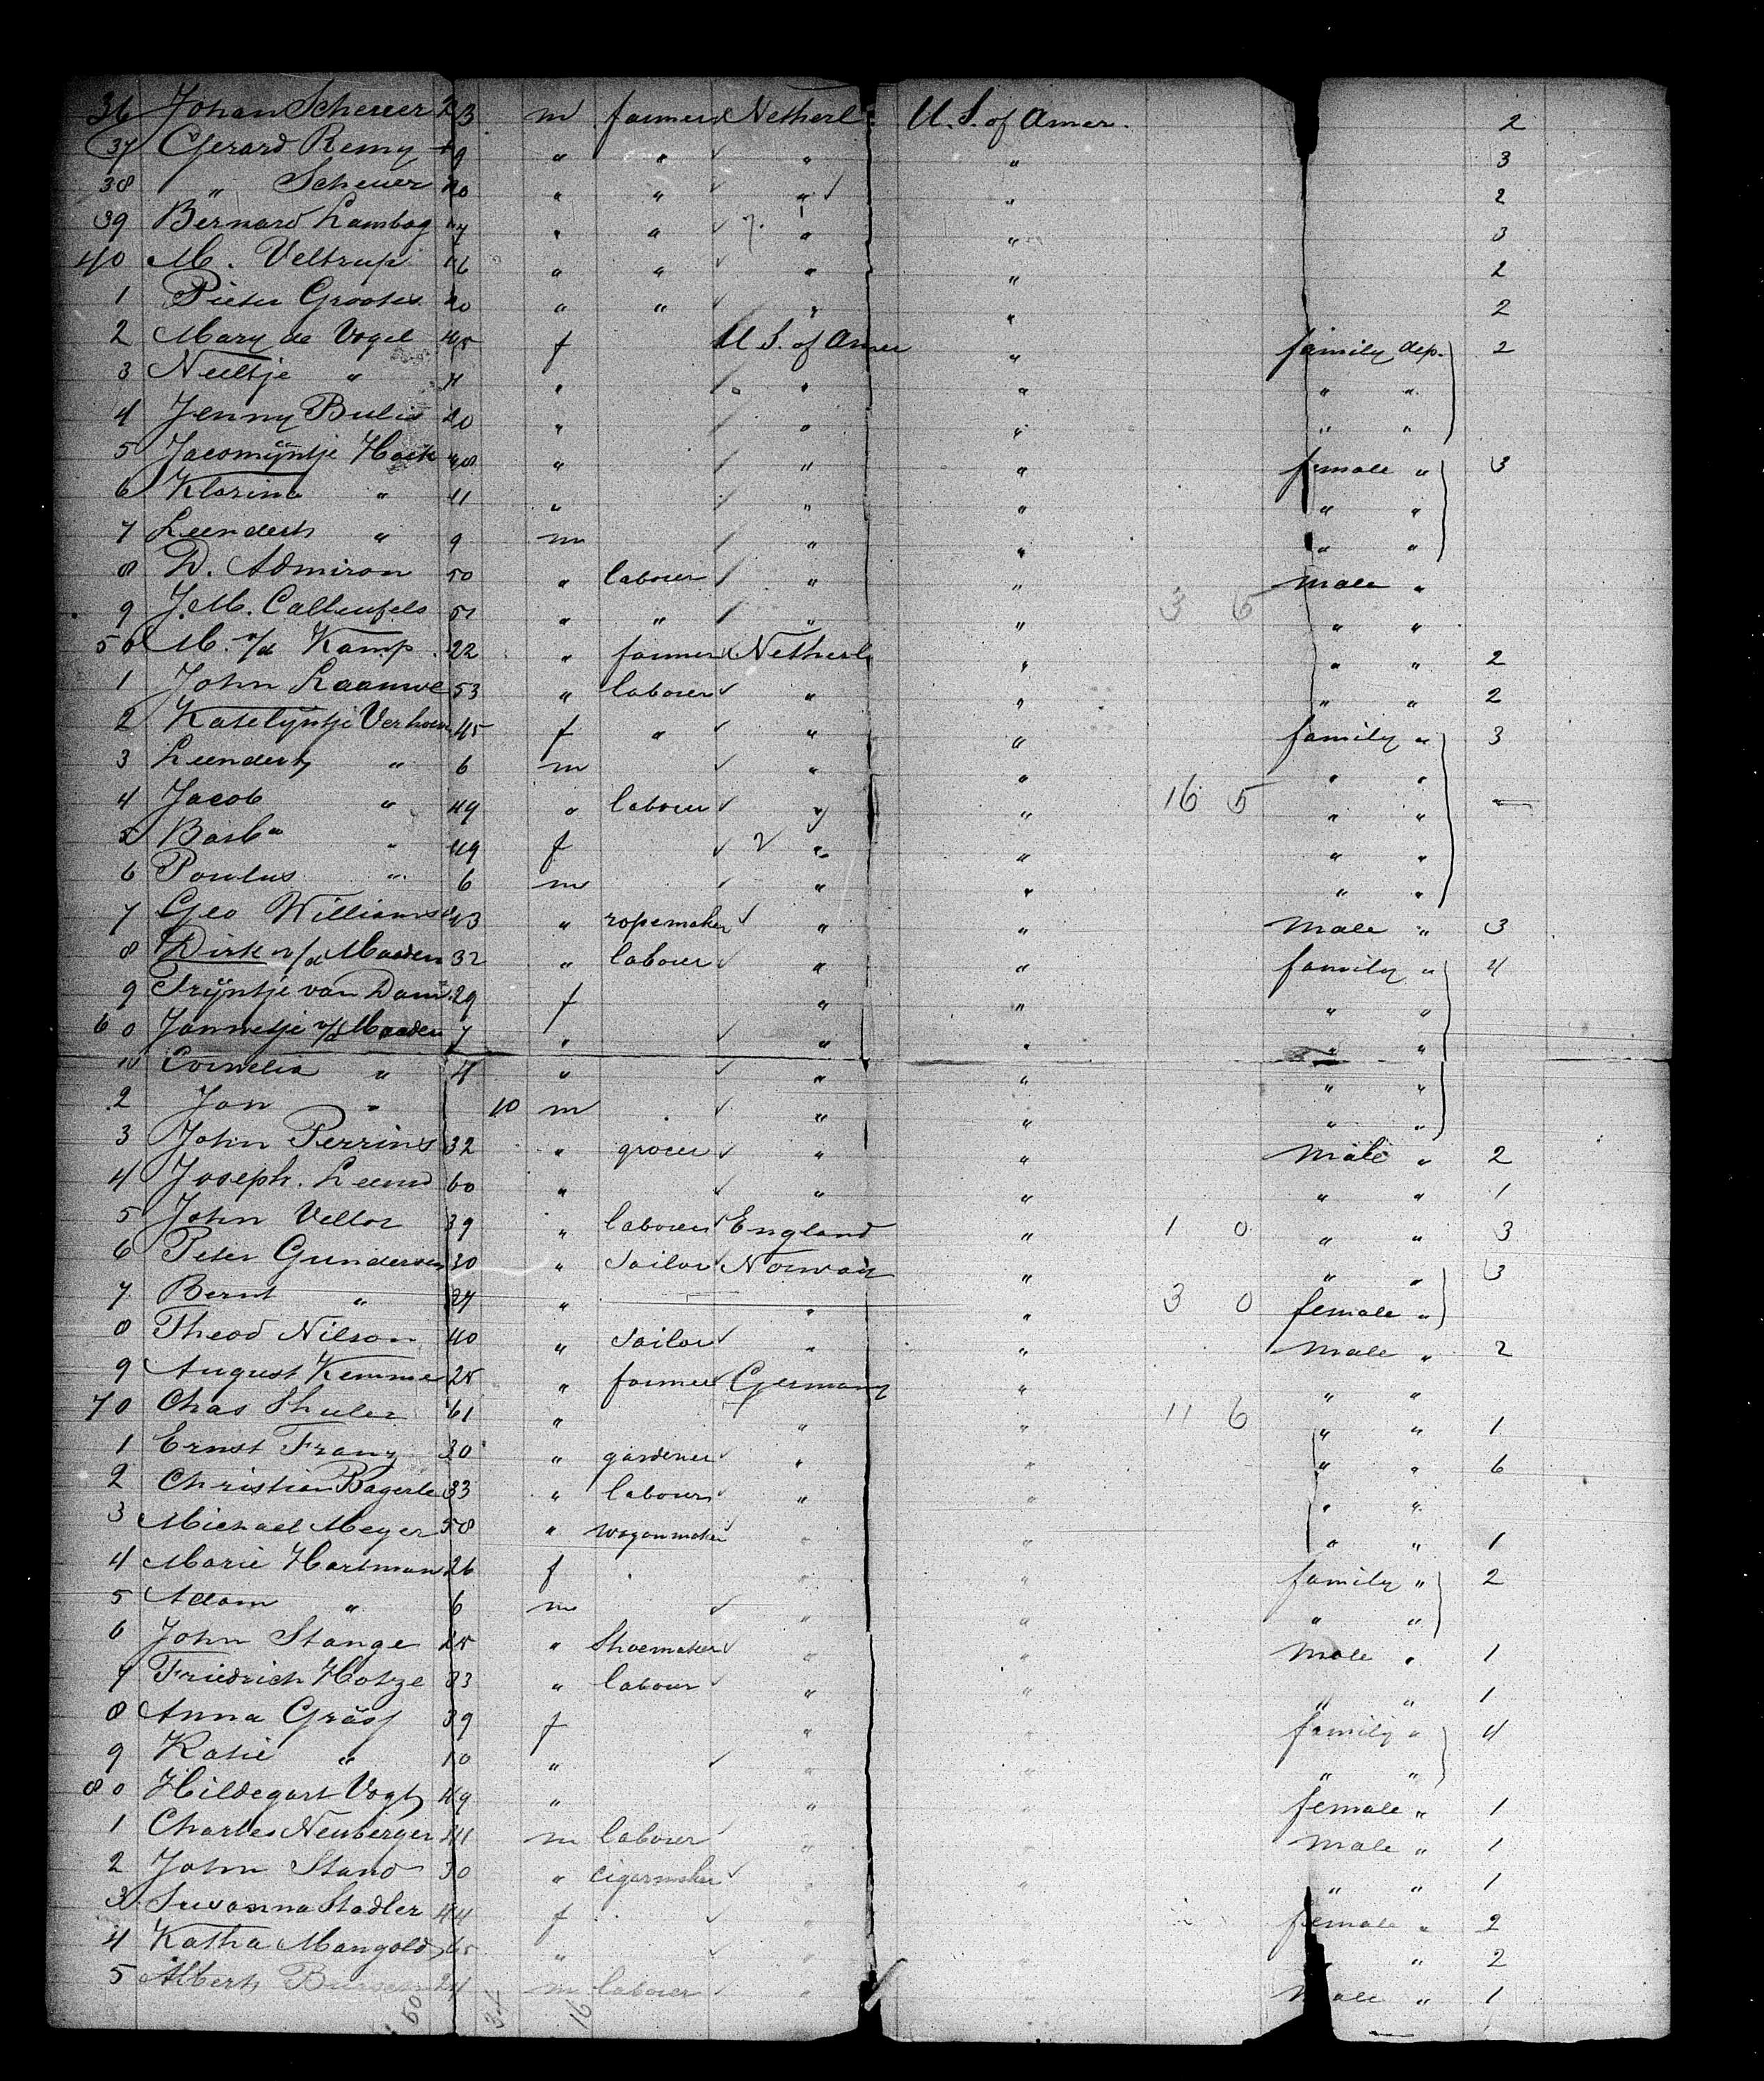 36 Johan Scheuer 23 m farmer Netherl. U. S. of Amer. 2
37 Gerard Remy 19 " " " " 3
38 " Scheuer 20 " " " " 2
39 Bernard Lambag " " " " 3
40 M. Veltrup 26 " " " " 2
1 Pieter Grootes 20 " " " " 2
2 Mary de Vogel 45 f U. S. of Amer " family dep. 2
3 Neeltje " " " " " "
4 Jenny Bulis 20 " " " " "
5 Jacomijntje Hack 48 " " " female " 3
6 Klarina " 11 " " " " "
7 Leendert " 9 m " " " "
8 D. Admiron 50 " labourer " " male "
9 J. M. 51 " " " " 3 5 " "
50 M. v/d Kamp 22 " farmer Netherl " " " 2
1 John Laanwe 53 " labourer " " " " 2
2 Katelijntje Verhoeve 45 f " " " family " 3
3 Leendert " 6 m " " " "
4 Jacob " 49 " labourer " " 16 5 " "
5 Barba " 49 f 2 " " " "
6 Poulus " 6 m " " " "
7 Geo Williams 43 " ropemaker " " male " 3
8 Dirk v/d Maden 32 " labourer " " family " 4
9 Trijntje van Dam 29 f " " " "
60 Jannetje v/d Maaden 7 " " " " "
Cornelia " 4 " " " " "
2 Jan " 10 m " " " "
3 John Perrins 32 " grocer " " male " 2
4 Joseph. Leend 60 " " " " " 1
5 John Vellor 39 " labourer England " 1 0 " " 3
6 Peter Gundersen 30 " Sailor Norway " " " 3
7 Bernt " 27 " " " 3 0 female "
8 Theod Nilson 40 " Sailor " " male " 2
9 August Kemme 25 " farmer Germany " " "
70 Chas Shuler 61 " " " 11 6 " " 1
1 Ernst Franz 30 " gardener " " " " 6
2 Christian Bagerle 33 " labourer " " " "
3 Michael Meyer 58 " wagonmaker " " " " 1
4 Marie Hartman 26 f " " family " 2
5 Adam " 6 m " " " "
6 John Stange 25 " Shoemaker " " male " 1
7 Friedrich Hotze 33 " labour " " " " 1
8 Anna Gräss 39 f " " family " 4
9 Katie " 10 " " " " "
80 Hildegart Vogt 49 " " " female " 1
1 Charles Neuberger m labourer " " male " 1
2 John Stand 30 " cigarmaker " " " " 1
3 Susanna Stadler 44 f " " female " 2
4 Katha Mangold 65 " " " " " 2
5 Albert 24 m labourer " " male " 1
50 34 16